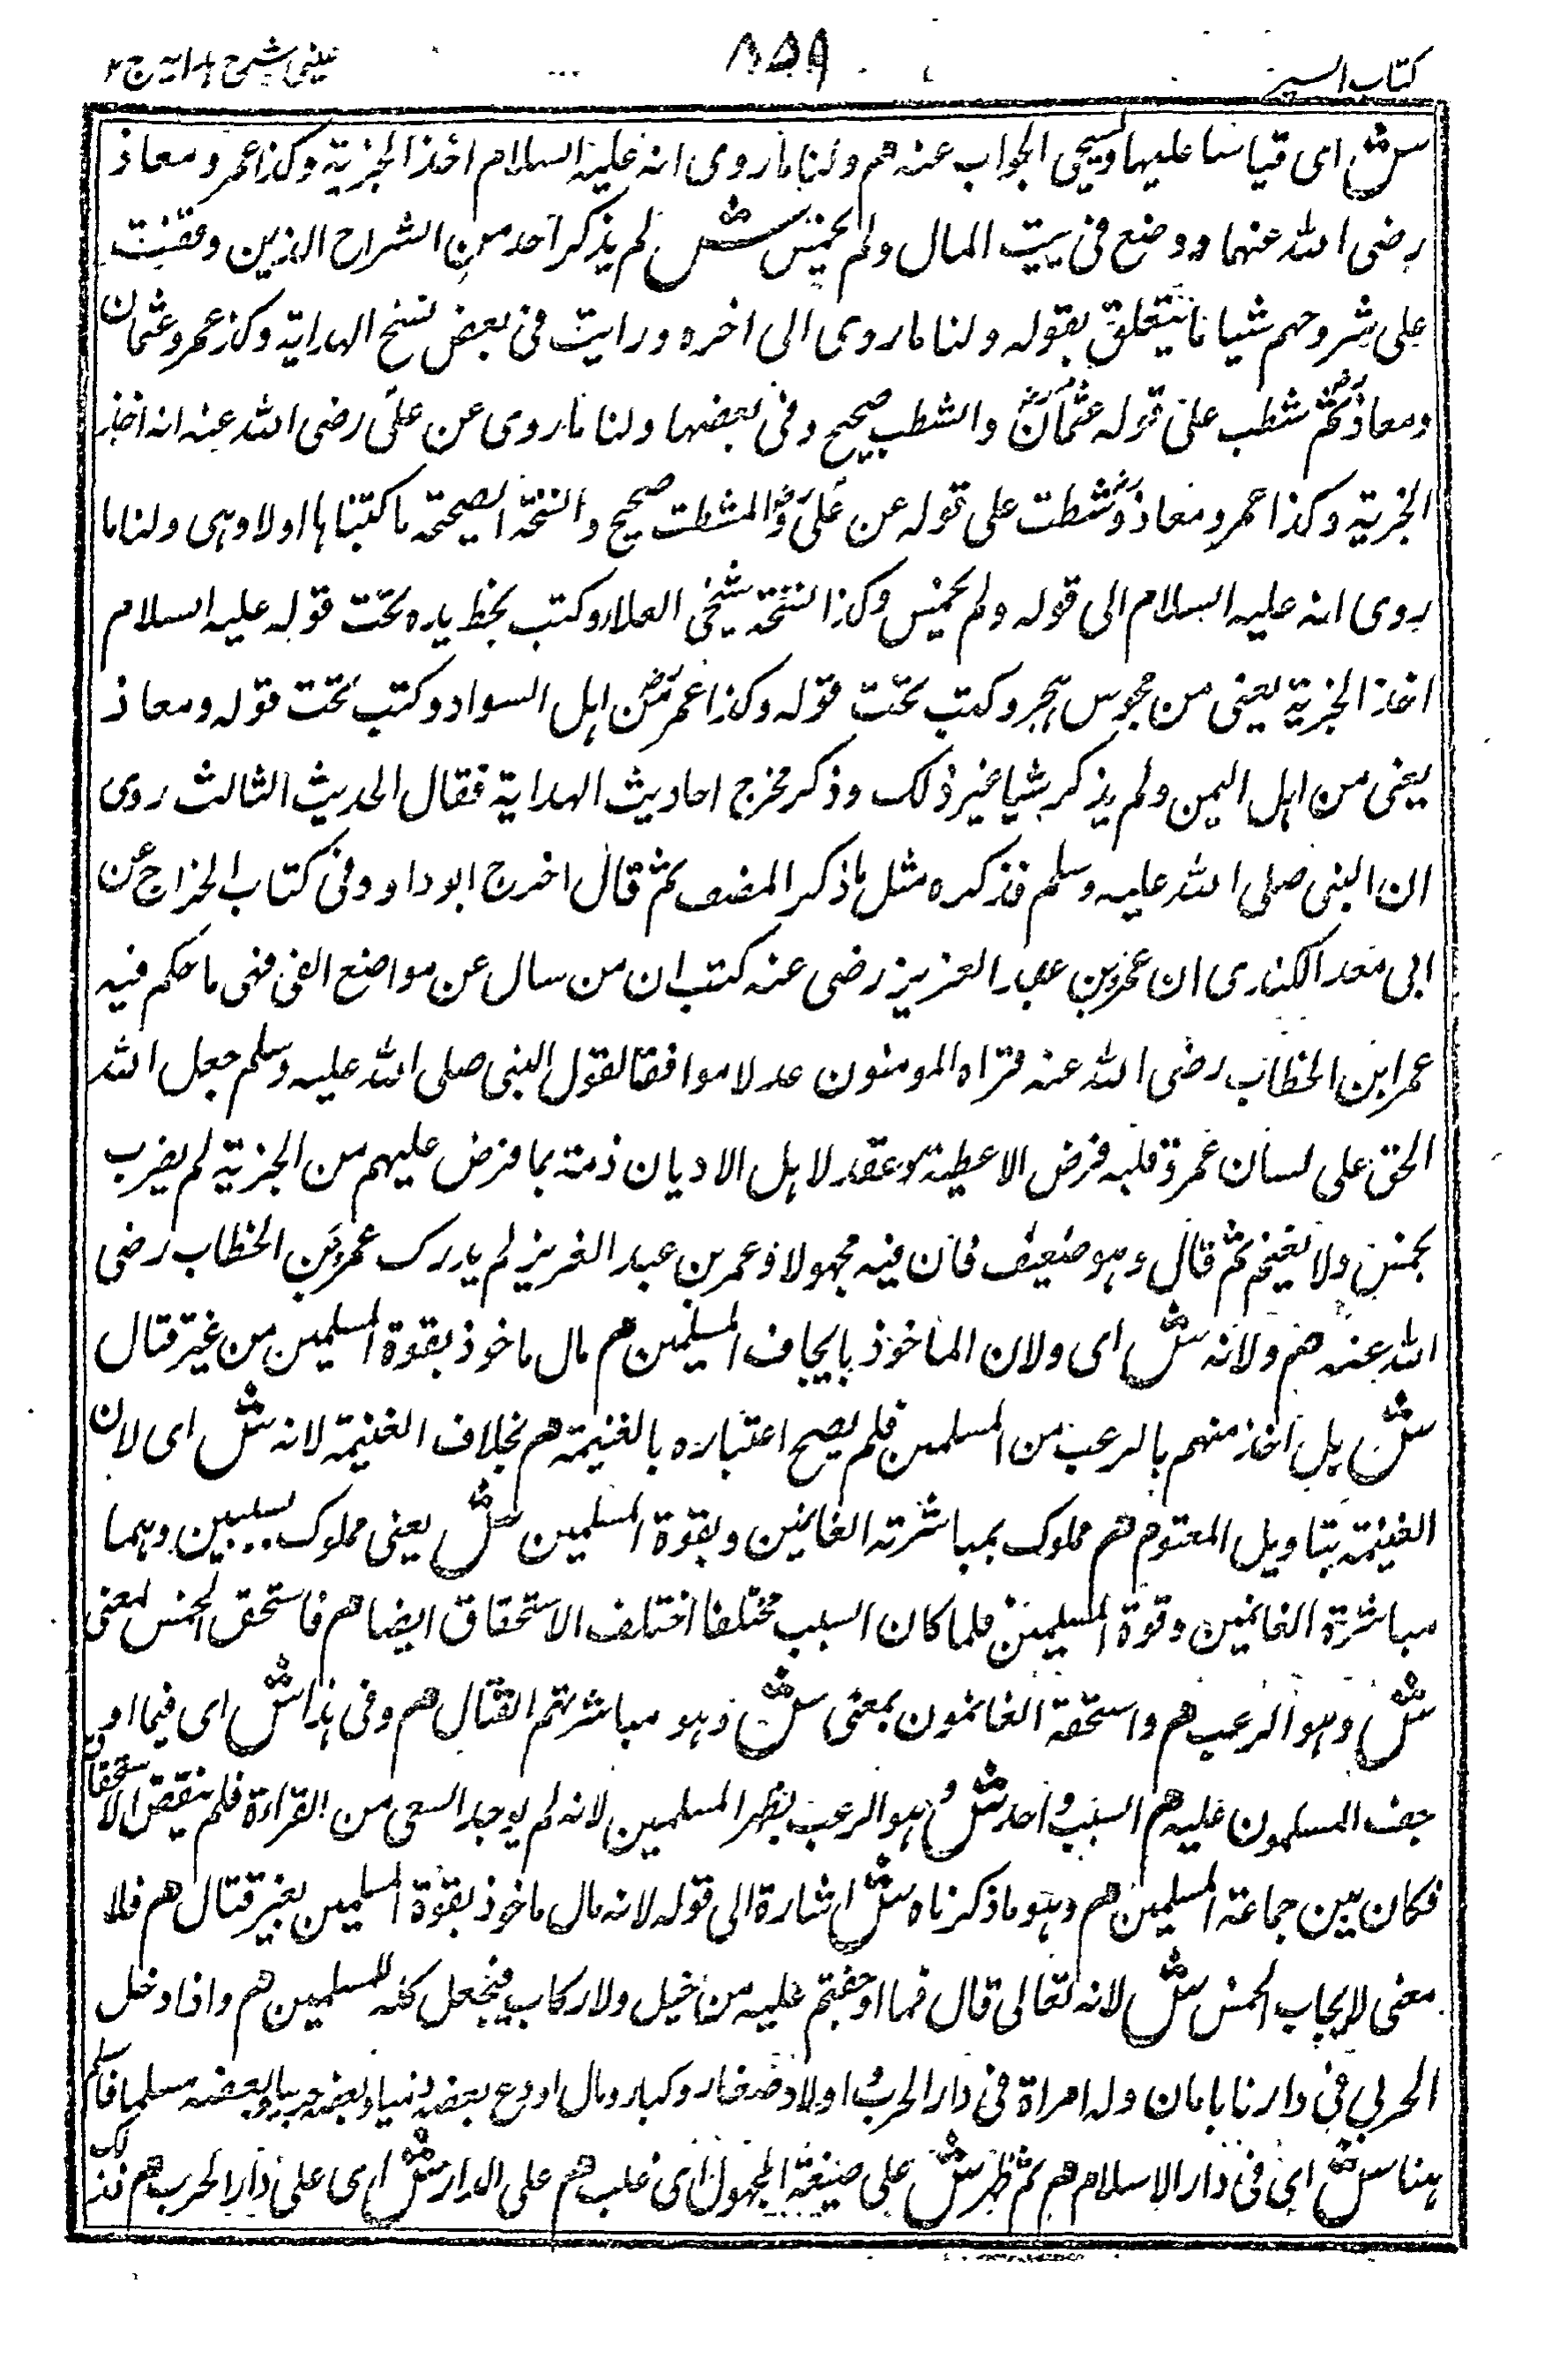 كتاب السير
۸۵۹
عيني شرح هدايه ج ۲
ش اى قياسا عليها ويجئ الجواب عنه هم ولنا ما روى انه عليه السلام اخذ الجزية وكذا عمر ومعاذ
رضى الله عنهما ووضع فى بيت المال ولم يخمس ش لم يذكر احد من الشراح الذين وقفت
على شروحهم شيا ما يتعلق بقوله ولنا ما روى الى اخره ورايت فى بعض نسخ الهداية وكذا عمر وعثمان
ومعاذ ثم شطب على قوله عثمان والشطب صحيح وفى بعضها ولنا ما روى عن على رضى الله عنه انه اخذ
الجزية وكذا عمر ومعاذ وشطت على قوله عن على والمشطت صحيح والنسخة الصحيحة ما كتبناها اولا وهى ولنا ما
روى انه عليه السلام الى قوله ولم يخمس وكذا النسخة شيخى العلاء وكتب بخط يده تحت قوله عليه السلام
اخذ الجزية يعنى من مجوس هجر وكتب تحت قوله وكذا عمر من اهل السواد وكتب تحت قوله ومعاذ
يعنى من اهل اليمن ولم يذكر شيا غير ذلك وذكر مخرج احاديث الهداية فقال الحديث الثالث روى
ان النبى صلى الله عليه وسلم فذكره مثل ما ذكر المصنف ثم قال اخرج ابو داود فى كتاب الخراج عن
ابى معد الكندى ان عمر بن عبد العزيز رضى عنه كتب ان من سال عن مواضع الفئ فهى ما حكم فيه
عمر ابن الخطاب رضى الله عنه فراه المومنون عدلا موافقا لقول النبى صلى الله عليه وسلم جعل الله
الحق على لسان عمر وقلبه فرض الاعطية وعقد لاهل الاديان ذمة بما فرض عليهم من الجزية لم يضرب
بخمس ولا بغنم ثم قال وهو ضعيف فان فيه مجهولا وعمر بن عبد العزيز لم يدرك عمر بن الخطاب رضى
الله عنه هم ولانه ش اى ولان الماخوذ بايجاف المسلمين هم مال ماخوذ بقوة المسلمين من غير قتال
ش بل اخذ منهم بالرعب من المسلمين فلم يصح اعتباره بالغنيمة هم بخلاف الغنيمة لانه ش اى لان
الغنيمة بتاويل المغنوم هم مملوك بمباشرته الغانمين وبقوة المسلمين ش يعنى مملوك بسببين وهما
مباشرة الغانمين وقوة المسلمين فلما كان السبب مختلفا اختلف الاستحقاق ايضا هم فاستحق الخمس بمعنى
ش وهو الرعب هم واستحقه الغانمون بمعنى ش وهو مباشرتهم القتال هم وفى هذا ش اى فيما او
جف المسلمون عليه هم السبب واحد ش وهو الرعب بظهر المسلمين لانه لم يوجد السعى من القراءة فلم ينقض الاستحقاق
فكان بين جماعة المسلمين هم وهو ما ذكرناه ش اشارة الى قوله لانه مال ماخوذ بقوة المسلمين بغير قتال هم فلا
معنى لايجاب الخمس ش لانه تعالى قال فما اوجفتم عليه من خيل ولا ركاب فيجعل كله للمسلمين هم واذا دخل
الحربي فى دارنا بامان وله امراة فى دار الحرب واولاد صغار وكبار ومال اودع بعضه ذميا وبعضه حربيا وبعضه مسلما فاسلم
هنا ش اى فى دار الاسلام هم ثم ظهر ش على صيغة المجهول اى غلب هم على الدار ش اى على دار الحرب هم فذلك